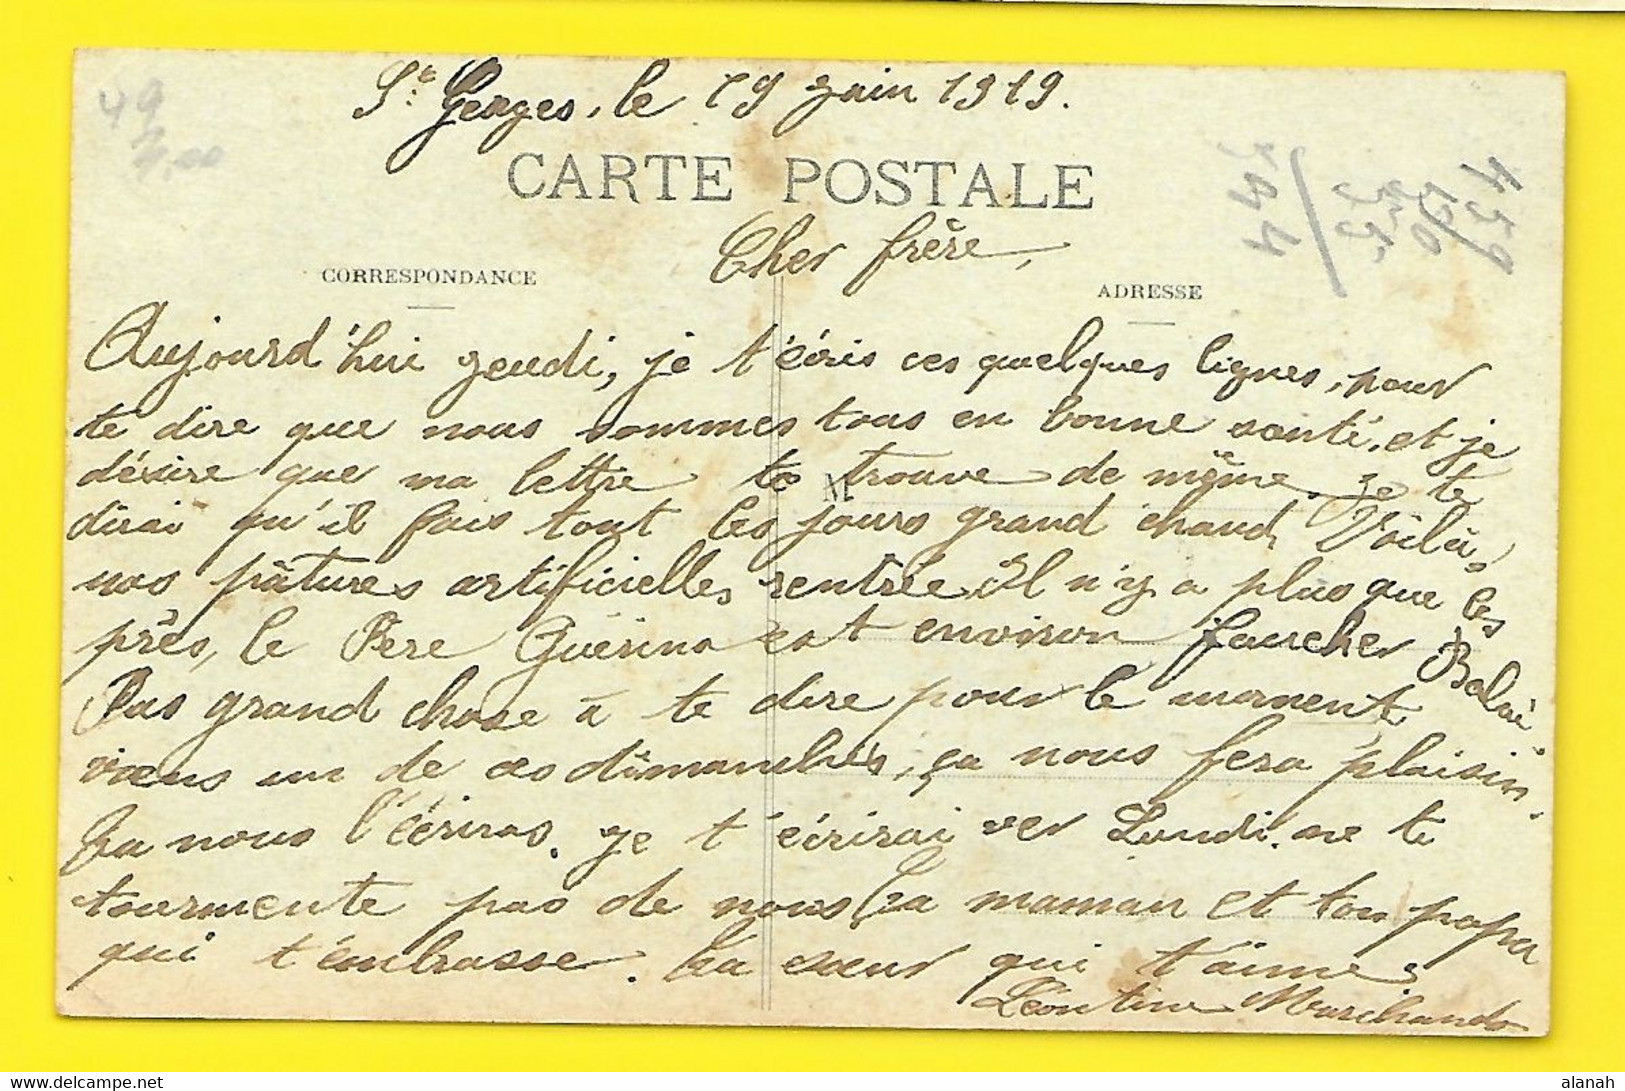 St Georges, le 19 juin 1919.
CARTE POSTALE
Cher frère,
CORRESPONDANCE
ADRESSE
Aujourd'hui jeudi, je t'écris ces quelques lignes, pour
te dire que nous sommes tous en bonne santé, et je
désire que ma lettre te trouve de même. Je te
M
dirai qu'il fais tout les jours grand chaud, Voila,
nos pâtures artificielles rentrée, Il n'y a plus que les
près, le Père Guérin est environ faucher
Pas grand chose à te dire pour le moment,
viens un de ces dimanches, ça nous fera plaisir.
Tu nous l'écriras. Je t'écrirai ver Lundi. ne te
tourmente pas de nous Ta maman et ton papa
qui t'embrasse. Ta sœur qui t'aime
Léontine Marchand
49
459
190
alanah